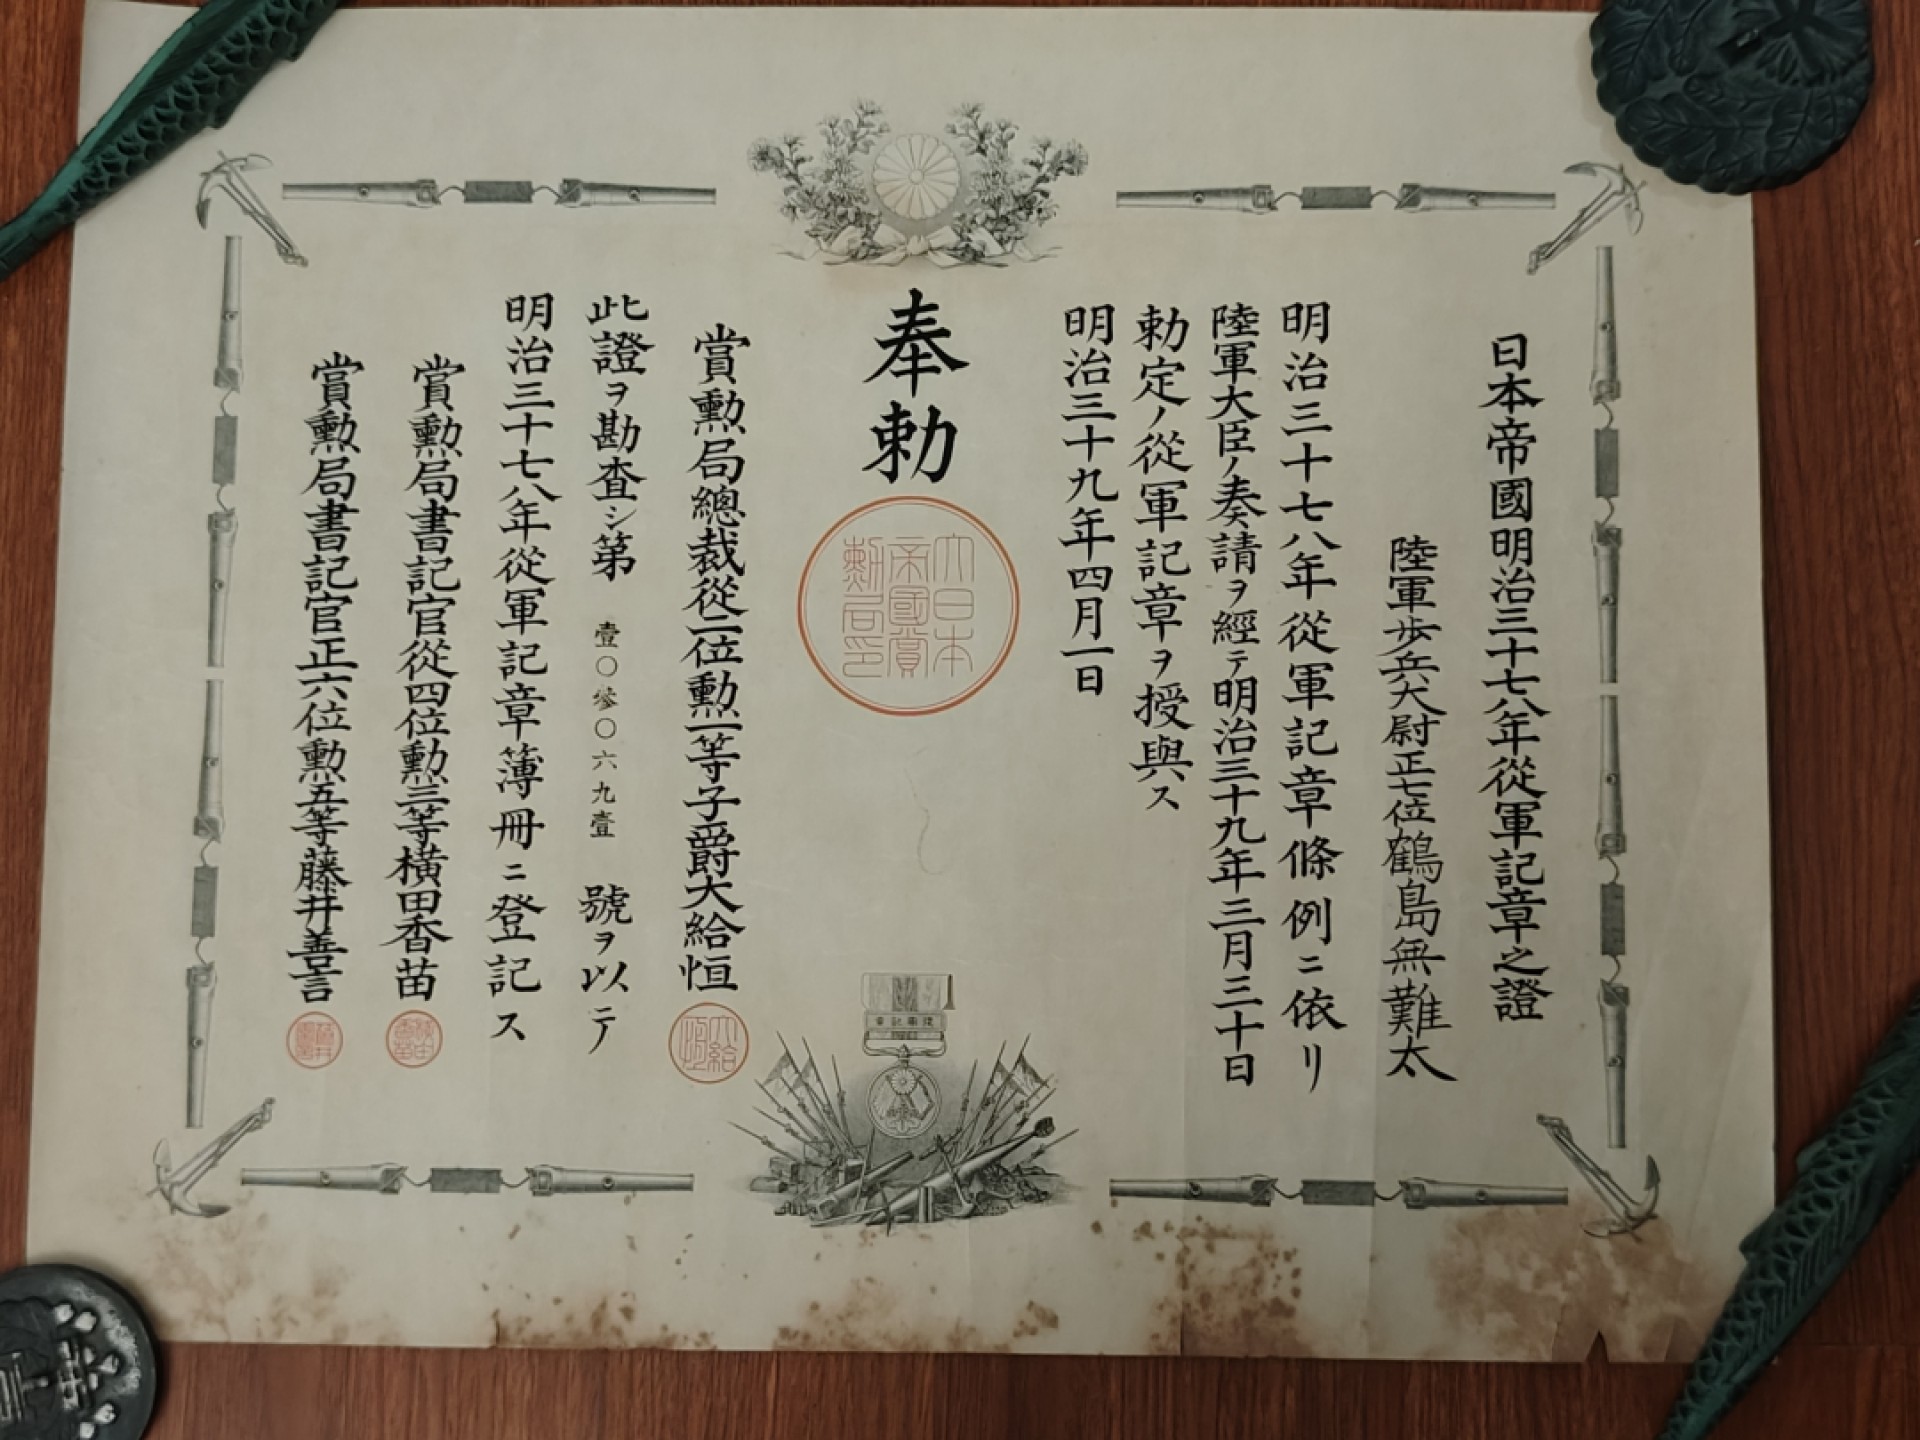 日本帝國明治三十七八年從軍記章之證
陸軍歩兵大尉正七位鶴島無難太
明治三十七八年從軍記章條例ニ依リ
陸軍大臣ノ奏請ヲ經テ明治三十九年三月三十日
勅定ノ從軍記章ヲ授與ス
明治三十九年四月一日
奉勅
大日本
帝國賞
勲局印
賞勲局總裁從二位勲一等子爵大給恒
此證ヲ勘査シ第壹〇参〇六九壹號ヲ以テ
明治三十七八年從軍記章簿冊ニ登記ス
賞勲局書記官從四位勲三等横田香苗
賞勲局書記官正六位勲五等藤井善言